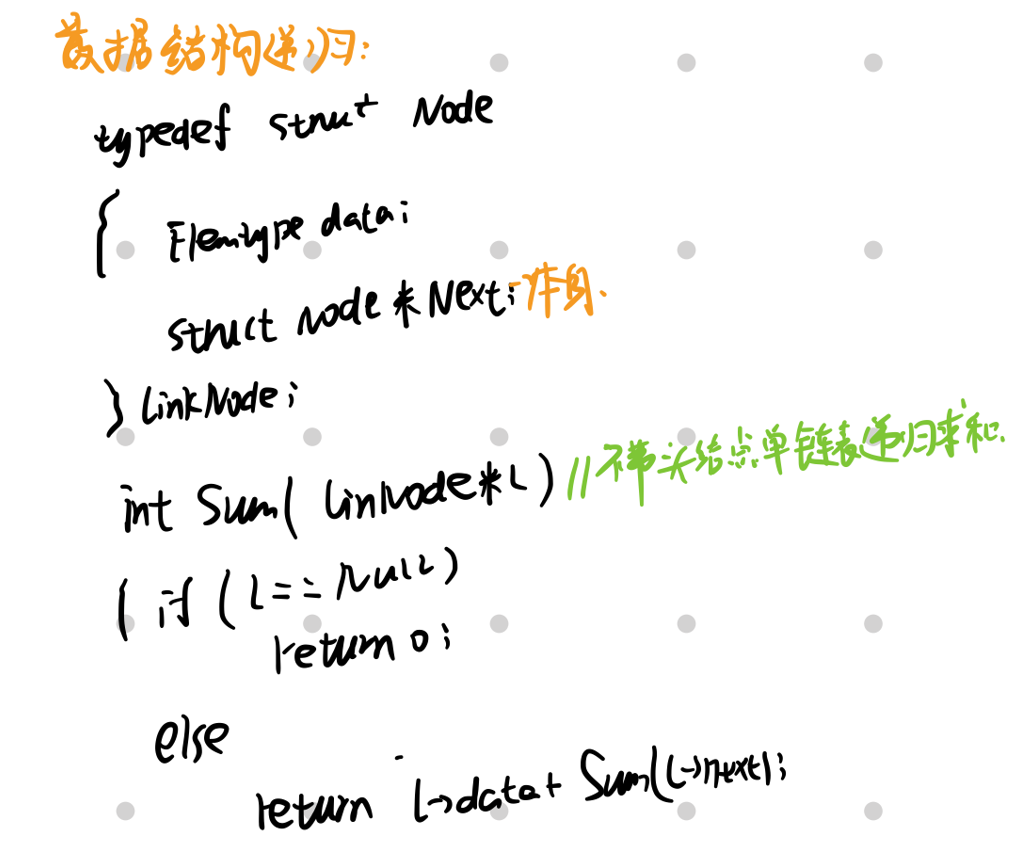 数据结构递归:
typedef struct Node
{ Elemtype data;
struct Node *Next;
} LinkNode;
int Sum( LinkNode*L) //不带头结点单链表递归求和.
{ if (L==NULL)
return 0;
else
return L->data+ Sum(L->next);